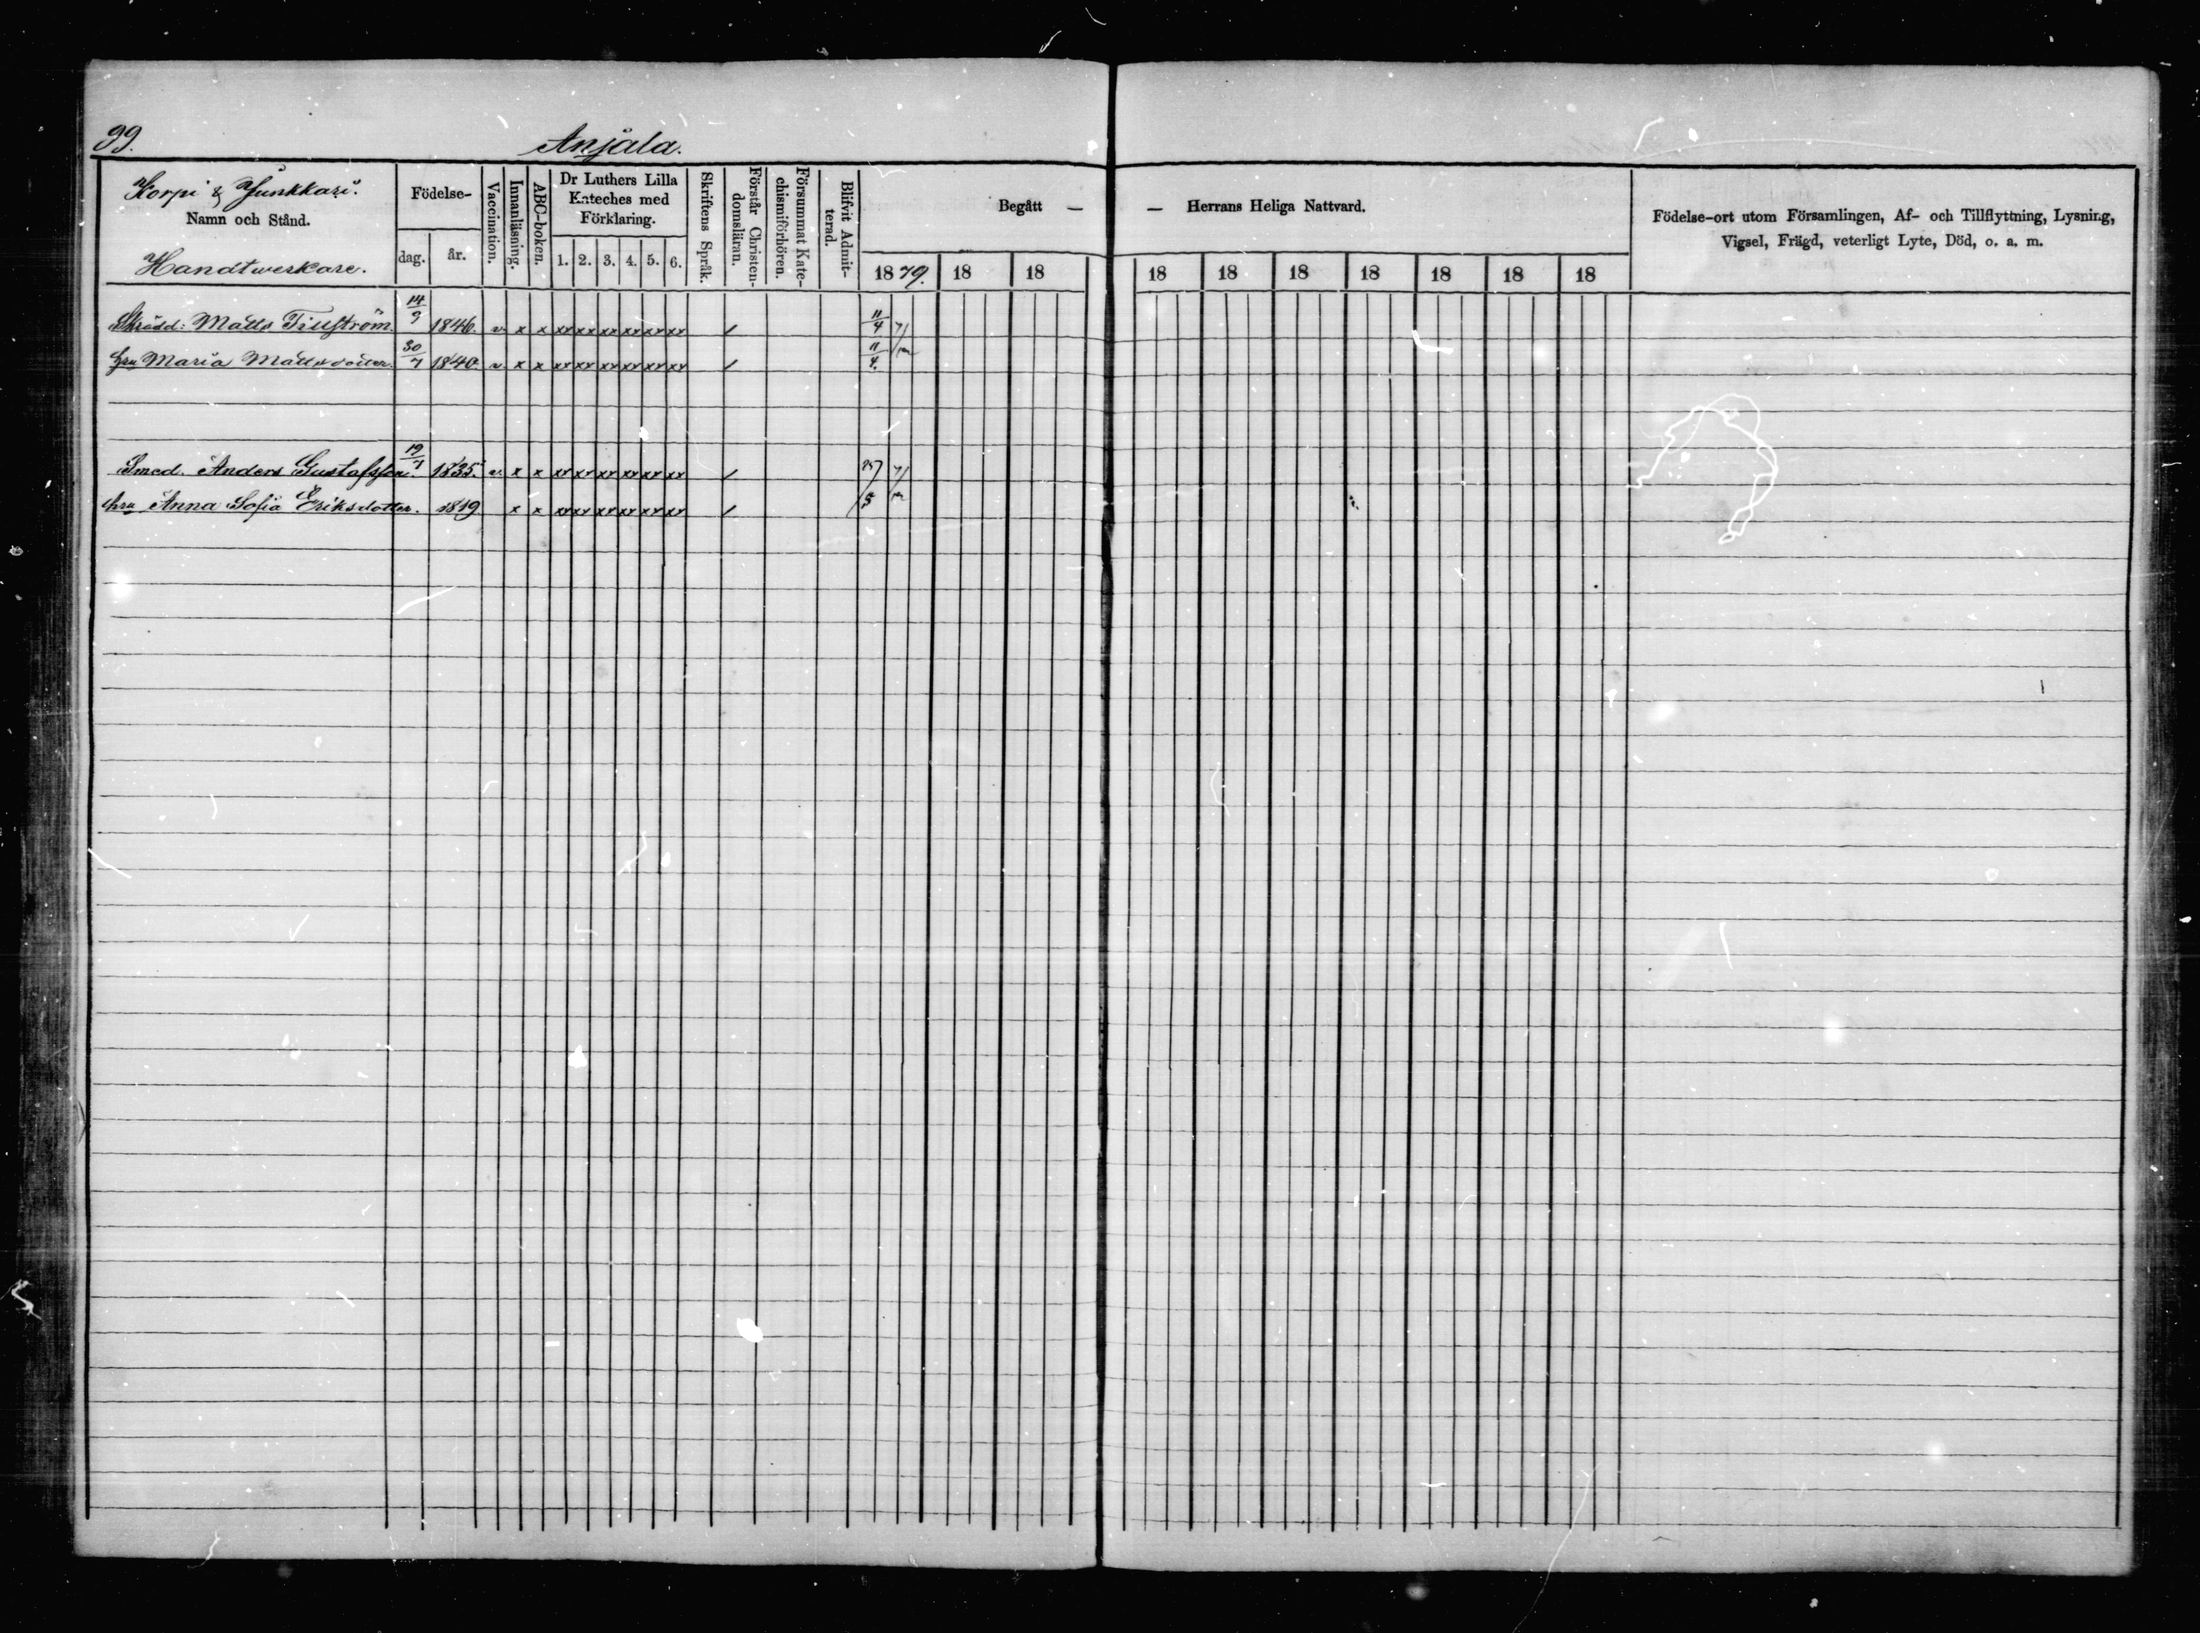 99.
Anjala.
Korpi & Junkkari.
Namn och Stånd.
Handtwerkare.
Födelse-
dag. år.
Vaccination.
Innanläsning.
ABC-boken.
Dr Luthers Lilla
Kateches med
Förklaring.
1. 2. 3. 4. 5. 6.
Skriftens Språk.
Förstår Christen-
domsläran.
Försummat Kate-
chismiförhören.
Blifvit Admit-
terad.
Begått — — Herrans Heliga Nattvard.
1879. 18 18 18 18 18 18 18 18 18
Födelse-ort utom Församlingen, Af- och Tillflyttning, Lysning,
Vigsel, Frägd, veterligt Lyte, Död, o. a. m.
Skrädd: Matts 14/9 1846. v. x x xx xx xx xx xx xx / 11/4
hru Maria Mattsdotter. 30/7 1840. v. x x xx xx xx xx xx xx / 11/4.
Smed. Anders Gustafsson. 19/7 1835. v. x x xx xx xx xx xx xx / 25/5
hru Anna Sofia Eriksdotter. 1819 x x xx xx xx xx xx xx /